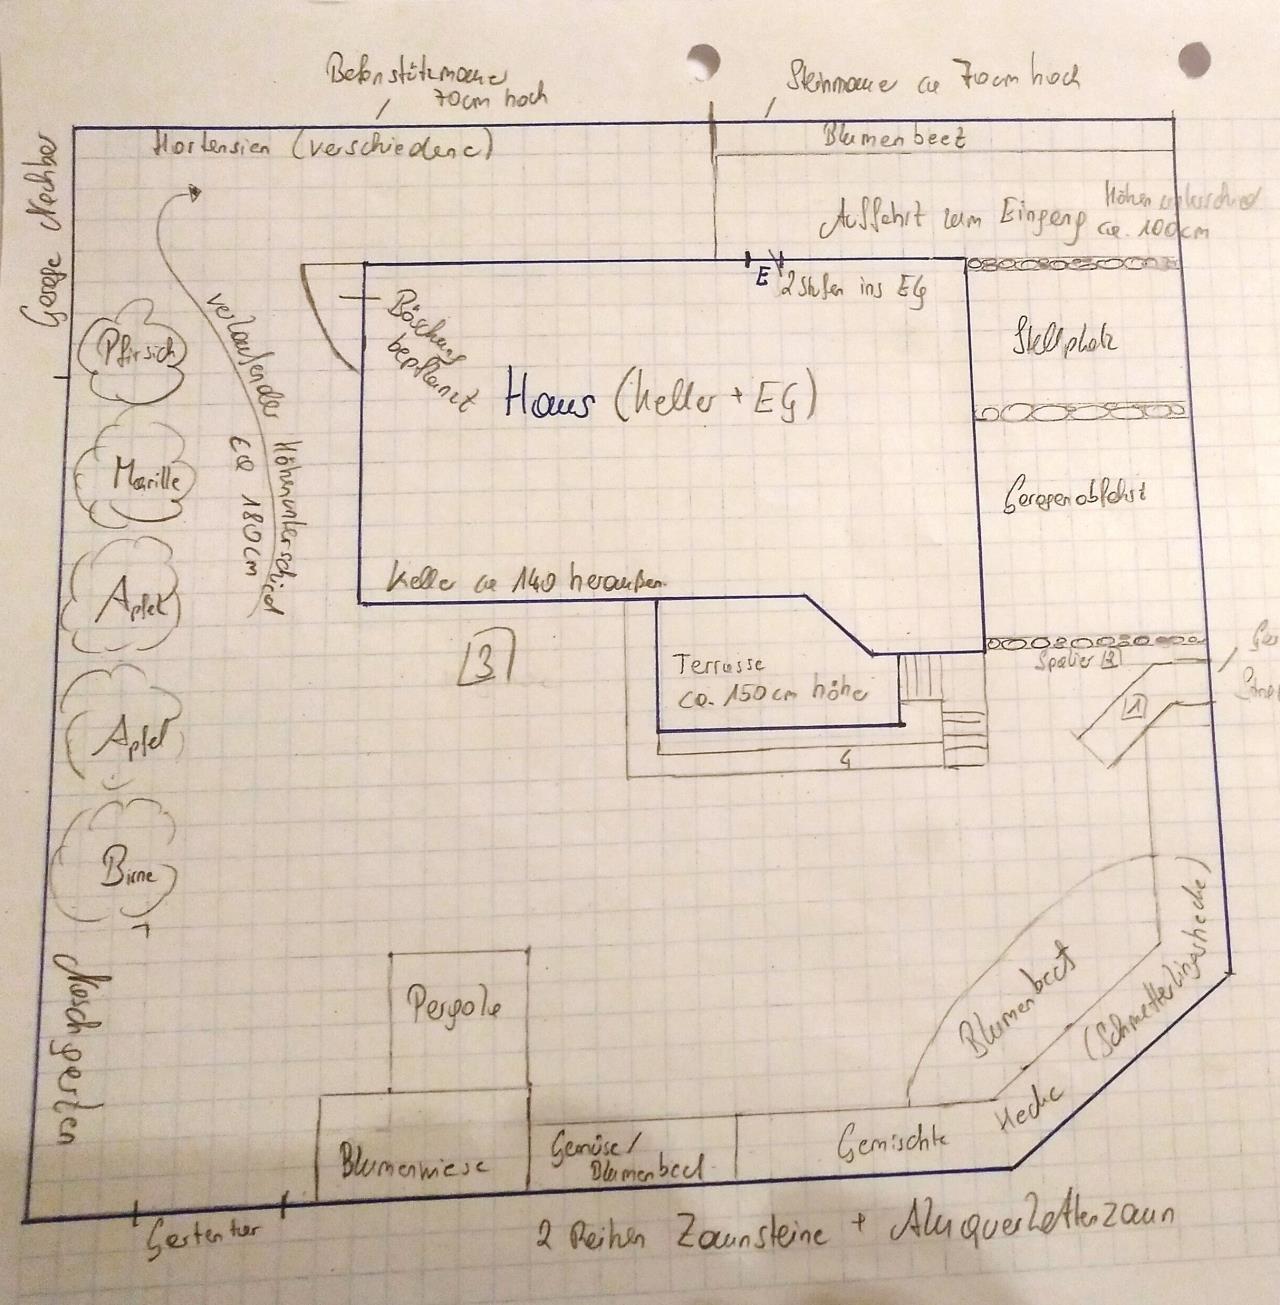 Betonstützmauer
70cm hoch
Steinmauer ca 70cm hoch
Hortensien (verschiedene)
Blumenbeet
Garage Nachbar
Auffahrt zum Eingang
Höhenunterschied
ca. 100cm
E
2 Stufen ins EG
Böschung
bepflanzt
Stellplatz
Pfirsich
verlaufender
Höhenunterschied
ca 180cm
Haus (Keller + EG)
Marille
Garagenabfahrt
Keller ca 140 heraußen
Apfel
3
Terrasse
ca. 150cm höher
Spalier 2
1
Apfel
4
Birne
Naschgarten
Pergola
Blumenbeet
(Schmetterlingshecke)
Blumenwiese
Gemüse/
Blumenbeet
Gemischte
Hecke
Gartentür
2 Reihen Zaunsteine + Aluquerlattenzaun